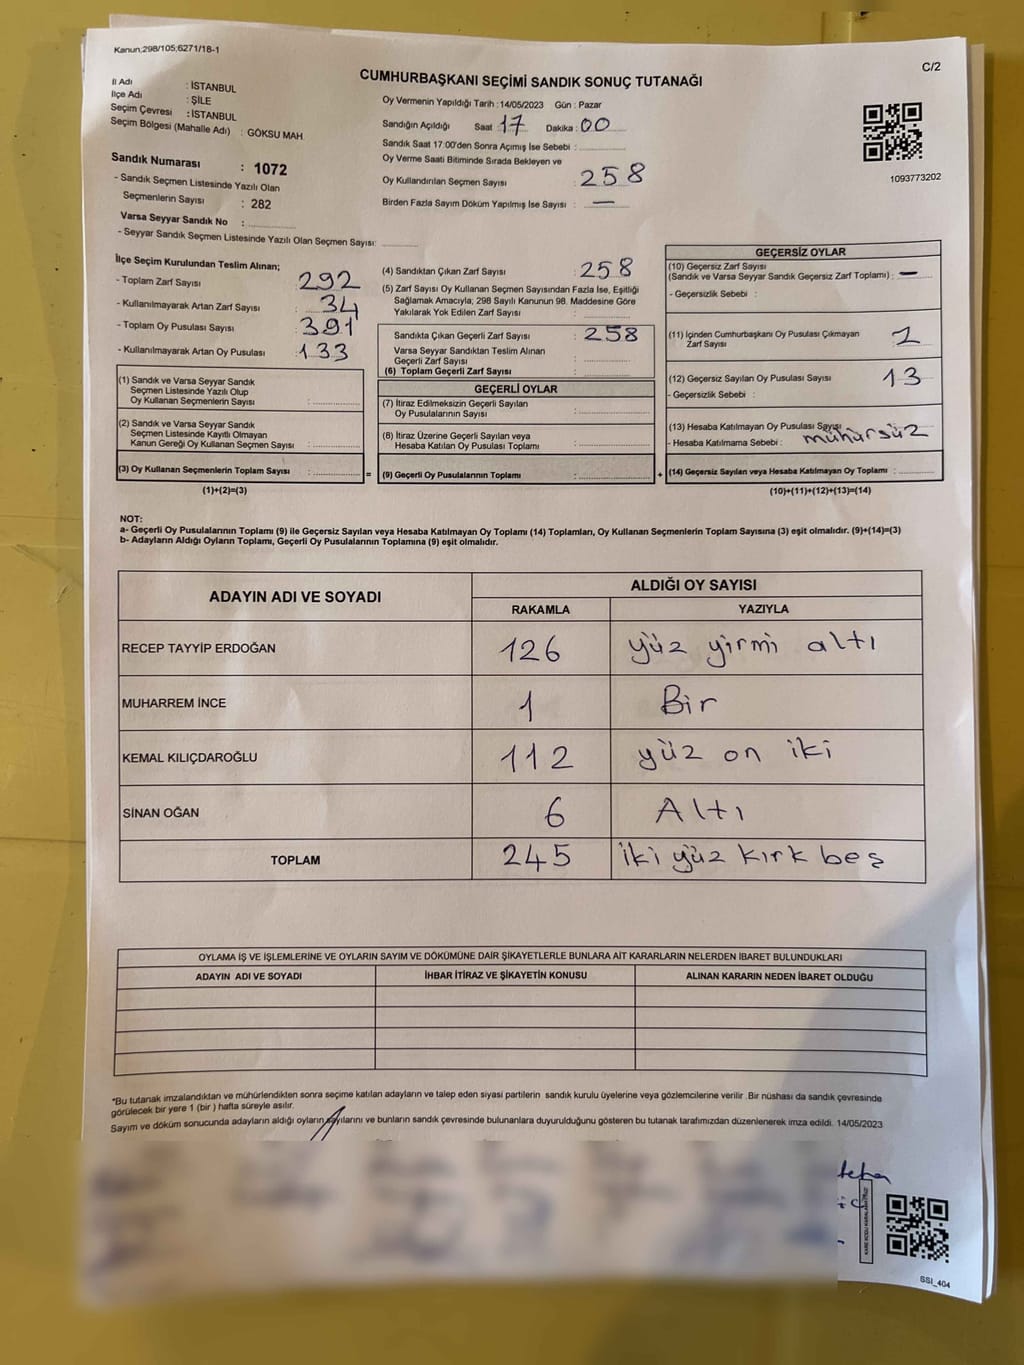 Kanun;298/105;6271/18-1
C/2
CUMHURBAŞKANI SEÇİMİ SANDIK SONUÇ TUTANAĞI
İl Adı : İSTANBUL
İlçe Adı : ŞİLE
Seçim Çevresi : İSTANBUL
Seçim Bölgesi (Mahalle Adı) : GÖKSU MAH
Sandık Numarası : 1072
- Sandık Seçmen Listesinde Yazılı Olan
Seçmenlerin Sayısı : 282
Varsa Seyyar Sandık No :
- Seyyar Sandık Seçmen Listesinde Yazılı Olan Seçmen Sayısı:
Oy Vermenin Yapıldığı Tarih : 14/05/2023 Gün : Pazar
Sandığın Açıldığı Saat : 17 Dakika : 00
Sandık Saat 17:00'den Sonra Açımış İse Sebebi :
Oy Verme Saati Bitiminde Sırada Bekleyen ve
Oy Kullandırılan Seçmen Sayısı : 258
Birden Fazla Sayım Döküm Yapılmış İse Sayısı : —
1093773202
İlçe Seçim Kurulundan Teslim Alınan;
- Toplam Zarf Sayısı : 292
- Kullanılmayarak Artan Zarf Sayısı : 34
- Toplam Oy Pusulası Sayısı : 391
- Kullanılmayarak Artan Oy Pusulası : 133
(1) Sandık ve Varsa Seyyar Sandık
Seçmen Listesinde Yazılı Olup
Oy Kullanan Seçmenlerin Sayısı :
(2) Sandık ve Varsa Seyyar Sandık
Seçmen Listesinde Kayıtlı Olmayan
Kanun Gereği Oy Kullanan Seçmen Sayısı :
(3) Oy Kullanan Seçmenlerin Toplam Sayısı : =
(1)+(2)=(3)
(4) Sandıktan Çıkan Zarf Sayısı : 258
(5) Zarf Sayısı Oy Kullanan Seçmen Sayısından Fazla İse, Eşitliği
Sağlamak Amacıyla; 298 Sayılı Kanunun 98. Maddesine Göre
Yakılarak Yok Edilen Zarf Sayısı :
Sandıkta Çıkan Geçerli Zarf Sayısı : 258
Varsa Seyyar Sandıktan Teslim Alınan
Geçerli Zarf Sayısı :
(6) Toplam Geçerli Zarf Sayısı :
GEÇERLİ OYLAR
(7) İtiraz Edilmeksizin Geçerli Sayılan
Oy Pusulalarının Sayısı :
(8) İtiraz Üzerine Geçerli Sayılan veya
Hesaba Katılan Oy Pusulası Toplamı :
(9) Geçerli Oy Pusulalarının Toplamı : +
GEÇERSİZ OYLAR
(10) Geçersiz Zarf Sayısı
(Sandık ve Varsa Seyyar Sandık Geçersiz Zarf Toplamı) : —
- Geçersizlik Sebebi :
(11) İçinden Cumhurbaşkanı Oy Pusulası Çıkmayan
Zarf Sayısı :
(12) Geçersiz Sayılan Oy Pusulası Sayısı : 13
- Geçersizlik Sebebi :
(13) Hesaba Katılmayan Oy Pusulası Sayısı
- Hesaba Katılmama Sebebi : mühürsüz
(14) Geçersiz Sayılan veya Hesaba Katılmayan Oy Toplamı :
(10)+(11)+(12)+(13)=(14)
NOT:
a- Geçerli Oy Pusulalarının Toplamı (9) ile Geçersiz Sayılan veya Hesaba Katılmayan Oy Toplamı (14) Toplamları, Oy Kullanan Seçmenlerin Toplam Sayısına (3) eşit olmalıdır. (9)+(14)=(3)
b- Adayların Aldığı Oyların Toplamı, Geçerli Oy Pusulalarının Toplamına (9) eşit olmalıdır.
ADAYIN ADI VE SOYADI
ALDIĞI OY SAYISI
RAKAMLA YAZIYLA
RECEP TAYYİP ERDOĞAN 126 yüz yirmi altı
MUHARREM İNCE 1 Bir
KEMAL KILIÇDAROĞLU 112 yüz on iki
SİNAN OĞAN 6 Altı
TOPLAM 245 iki yüz kırk beş
OYLAMA İŞ VE İŞLEMLERİNE VE OYLARIN SAYIM VE DÖKÜMÜNE DAİR ŞİKAYETLERLE BUNLARA AİT KARARLARIN NELERDEN İBARET BULUNDUKLARI
ADAYIN ADI VE SOYADI İHBAR İTİRAZ VE ŞİKAYETİN KONUSU ALINAN KARARIN NEDEN İBARET OLDUĞU
*Bu tutanak imzalandıktan ve mühürlendikten sonra seçime katılan adayların ve talep eden siyasi partilerin sandık kurulu üyelerine veya gözlemcilerine verilir .Bir nüshası da sandık çevresinde
görülecek bir yere 1 (bir ) hafta süreyle asılır.
Sayım ve döküm sonucunda adayların aldığı oyların sayılarını ve bunların sandık çevresinde bulunanlara duyurulduğunu gösteren bu tutanak tarafımızdan düzenlenerek imza edildi. 14/05/2023
KARE KODU KARALAMAYINIZ!
SSI_404